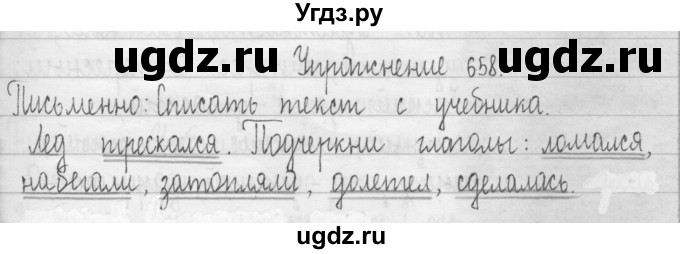 Угдз.ру
ugdz.ru ugdz.ru
Упражнение 658.
Письменно: Списать текст с учебника.
Лед трескался. Подчеркни глаголы: ломался,
набегали, затопляла, долетел, сделалась.
ugdz.ru ugdz.ru
ugdz.ru